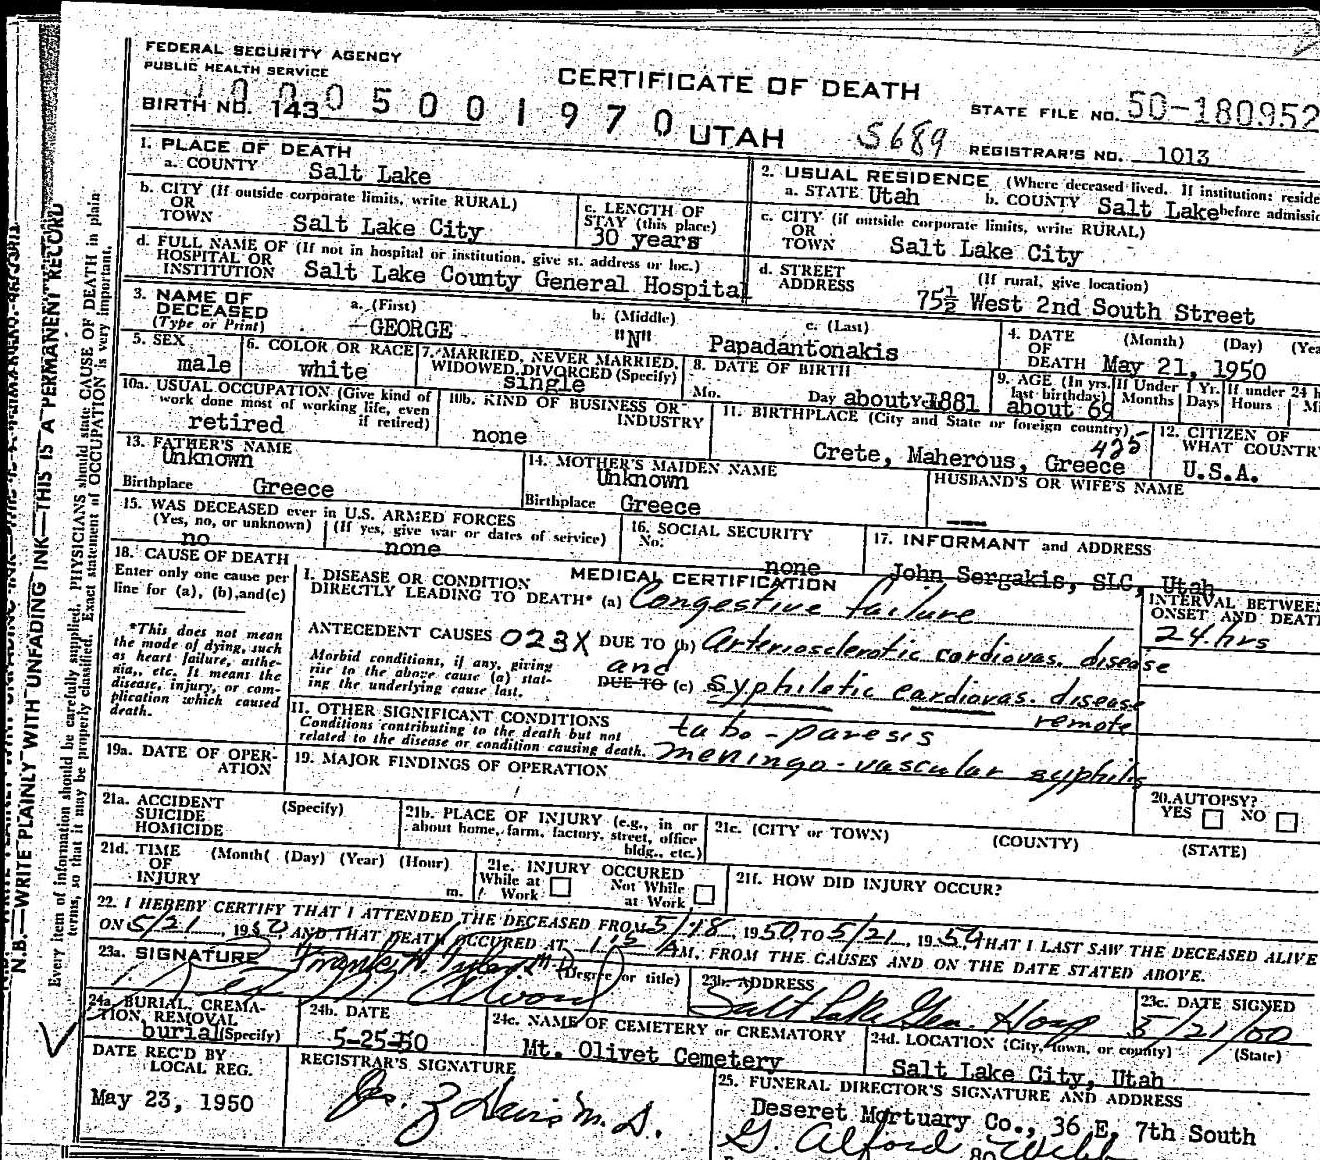 FEDERAL SECURITY AGENCY
PUBLIC HEALTH SERVICE
CERTIFICATE OF DEATH
STATE FILE NO. 50-180952
BIRTH NO. 143 0 5 0 0 1 9 7 0 UTAH S689
REGISTRAR'S NO. 1013
1. PLACE OF DEATH
a. COUNTY Salt Lake
b. CITY (If outside corporate limits, write RURAL)
OR
TOWN Salt Lake City
c. LENGTH OF
STAY (this place)
30 years
d. FULL NAME OF (If not in hospital or institution, give st. address or loc.)
HOSPITAL OR
INSTITUTION Salt Lake County General Hospital
2. USUAL RESIDENCE (Where deceased lived. If institution: reside
a. STATE Utah b. COUNTY Salt Lake before admissio
c. CITY (if outside corporate limits, write RURAL)
OR
TOWN Salt Lake City
d. STREET (If rural, give location)
ADDRESS 75½ West 2nd South Street
3. NAME OF
DECEASED
(Type or Print)
a. (First) GEORGE
b. (Middle) "N"
c. (Last) Papadantonakis
4. DATE (Month) (Day) (Yea
OF
DEATH May 21, 1950
5. SEX male
6. COLOR OR RACE white
7. MARRIED, NEVER MARRIED,
WIDOWED, DIVORCED (Specify)
single
8. DATE OF BIRTH
Mo. Day about 1881
9. AGE (In yrs. last birthday) about 69
If Under 1 Yr. Months Days
If under 24 h Hours Mi
10a. USUAL OCCUPATION (Give kind of
work done most of working life, even
if retired)
retired
10b. KIND OF BUSINESS OR
INDUSTRY
none
11. BIRTHPLACE (City and State or foreign country)
425
Crete, Maherous, Greece
12. CITIZEN OF
WHAT COUNTR
U.S.A.
13. FATHER'S NAME
Unknown
Birthplace Greece
14. MOTHER'S MAIDEN NAME
Unknown
Birthplace Greece
HUSBAND'S OR WIFE'S NAME
15. WAS DECEASED ever in U.S. ARMED FORCES
(Yes, no, or unknown) (If yes, give war or dates of service)
no none
16. SOCIAL SECURITY
No.
none
17. INFORMANT and ADDRESS
John Sergakis, SLC, Utah
18. CAUSE OF DEATH
Enter only one cause per
line for (a), (b), and (c)
*This does not mean
the mode of dying, such
as heart failure, asthe-
nia, etc. It means the
disease, injury, or com-
plication which caused
death.
MEDICAL CERTIFICATION
I. DISEASE OR CONDITION
DIRECTLY LEADING TO DEATH* (a) Congestive failure
INTERVAL BETWEEN
ONSET AND DEATH
24 hrs
ANTECEDENT CAUSES 023X DUE TO (b) Arteriosclerotic cardiovas. disease
Morbid conditions, if any, giving
rise to the above cause (a) stat-
ing the underlying cause last.
and
DUE TO (c) syphiletic cardiovas. disease
remote
II. OTHER SIGNIFICANT CONDITIONS
Conditions contributing to the death but not
related to the disease or condition causing death.
tabo-paresis
meningo-vascular syphilis
19a. DATE OF OPER-
ATION
19. MAJOR FINDINGS OF OPERATION
20. AUTOPSY?
YES NO
21a. ACCIDENT (Specify)
SUICIDE
HOMICIDE
21b. PLACE OF INJURY (e.g., in or
about home, farm, factory, street, office
bldg., etc.)
21c. (CITY or TOWN) (COUNTY) (STATE)
21d. TIME (Month( (Day) (Year) (Hour)
OF
INJURY m.
21e. INJURY OCCURED
While at Work
Not While at Work
21f. HOW DID INJURY OCCUR?
22. I HEREBY CERTIFY THAT I ATTENDED THE DECEASED FROM 5/18, 1950, TO 5/21, 1950, THAT I LAST SAW THE DECEASED ALIVE
ON 5/21, 1950 AND THAT DEATH OCCURED AT AM, FROM THE CAUSES AND ON THE DATE STATED ABOVE.
23a. SIGNATURE (Degree or title)
23b. ADDRESS
Salt Lake Gen. Hosp
23c. DATE SIGNED
5/21/50
24a. BURIAL, CREMA-
TION, REMOVAL
(Specify)
burial
24b. DATE
5-25-50
24c. NAME OF CEMETERY or CREMATORY
Mt. Olivet Cemetery
24d. LOCATION (City, town, or county) (State)
Salt Lake City, Utah
DATE REC'D BY
LOCAL REG.
May 23, 1950
REGISTRAR'S SIGNATURE
25. FUNERAL DIRECTOR'S SIGNATURE AND ADDRESS
Deseret Mortuary Co., 36 E. 7th South
N.B.—WRITE PLAINLY WITH UNFADING INK—THIS IS A PERMANENT RECORD
Every item of information should be carefully supplied. PHYSICIANS should state CAUSE OF DEATH in plain
terms, so that it may be properly classified. Exact statement of OCCUPATION is very important.